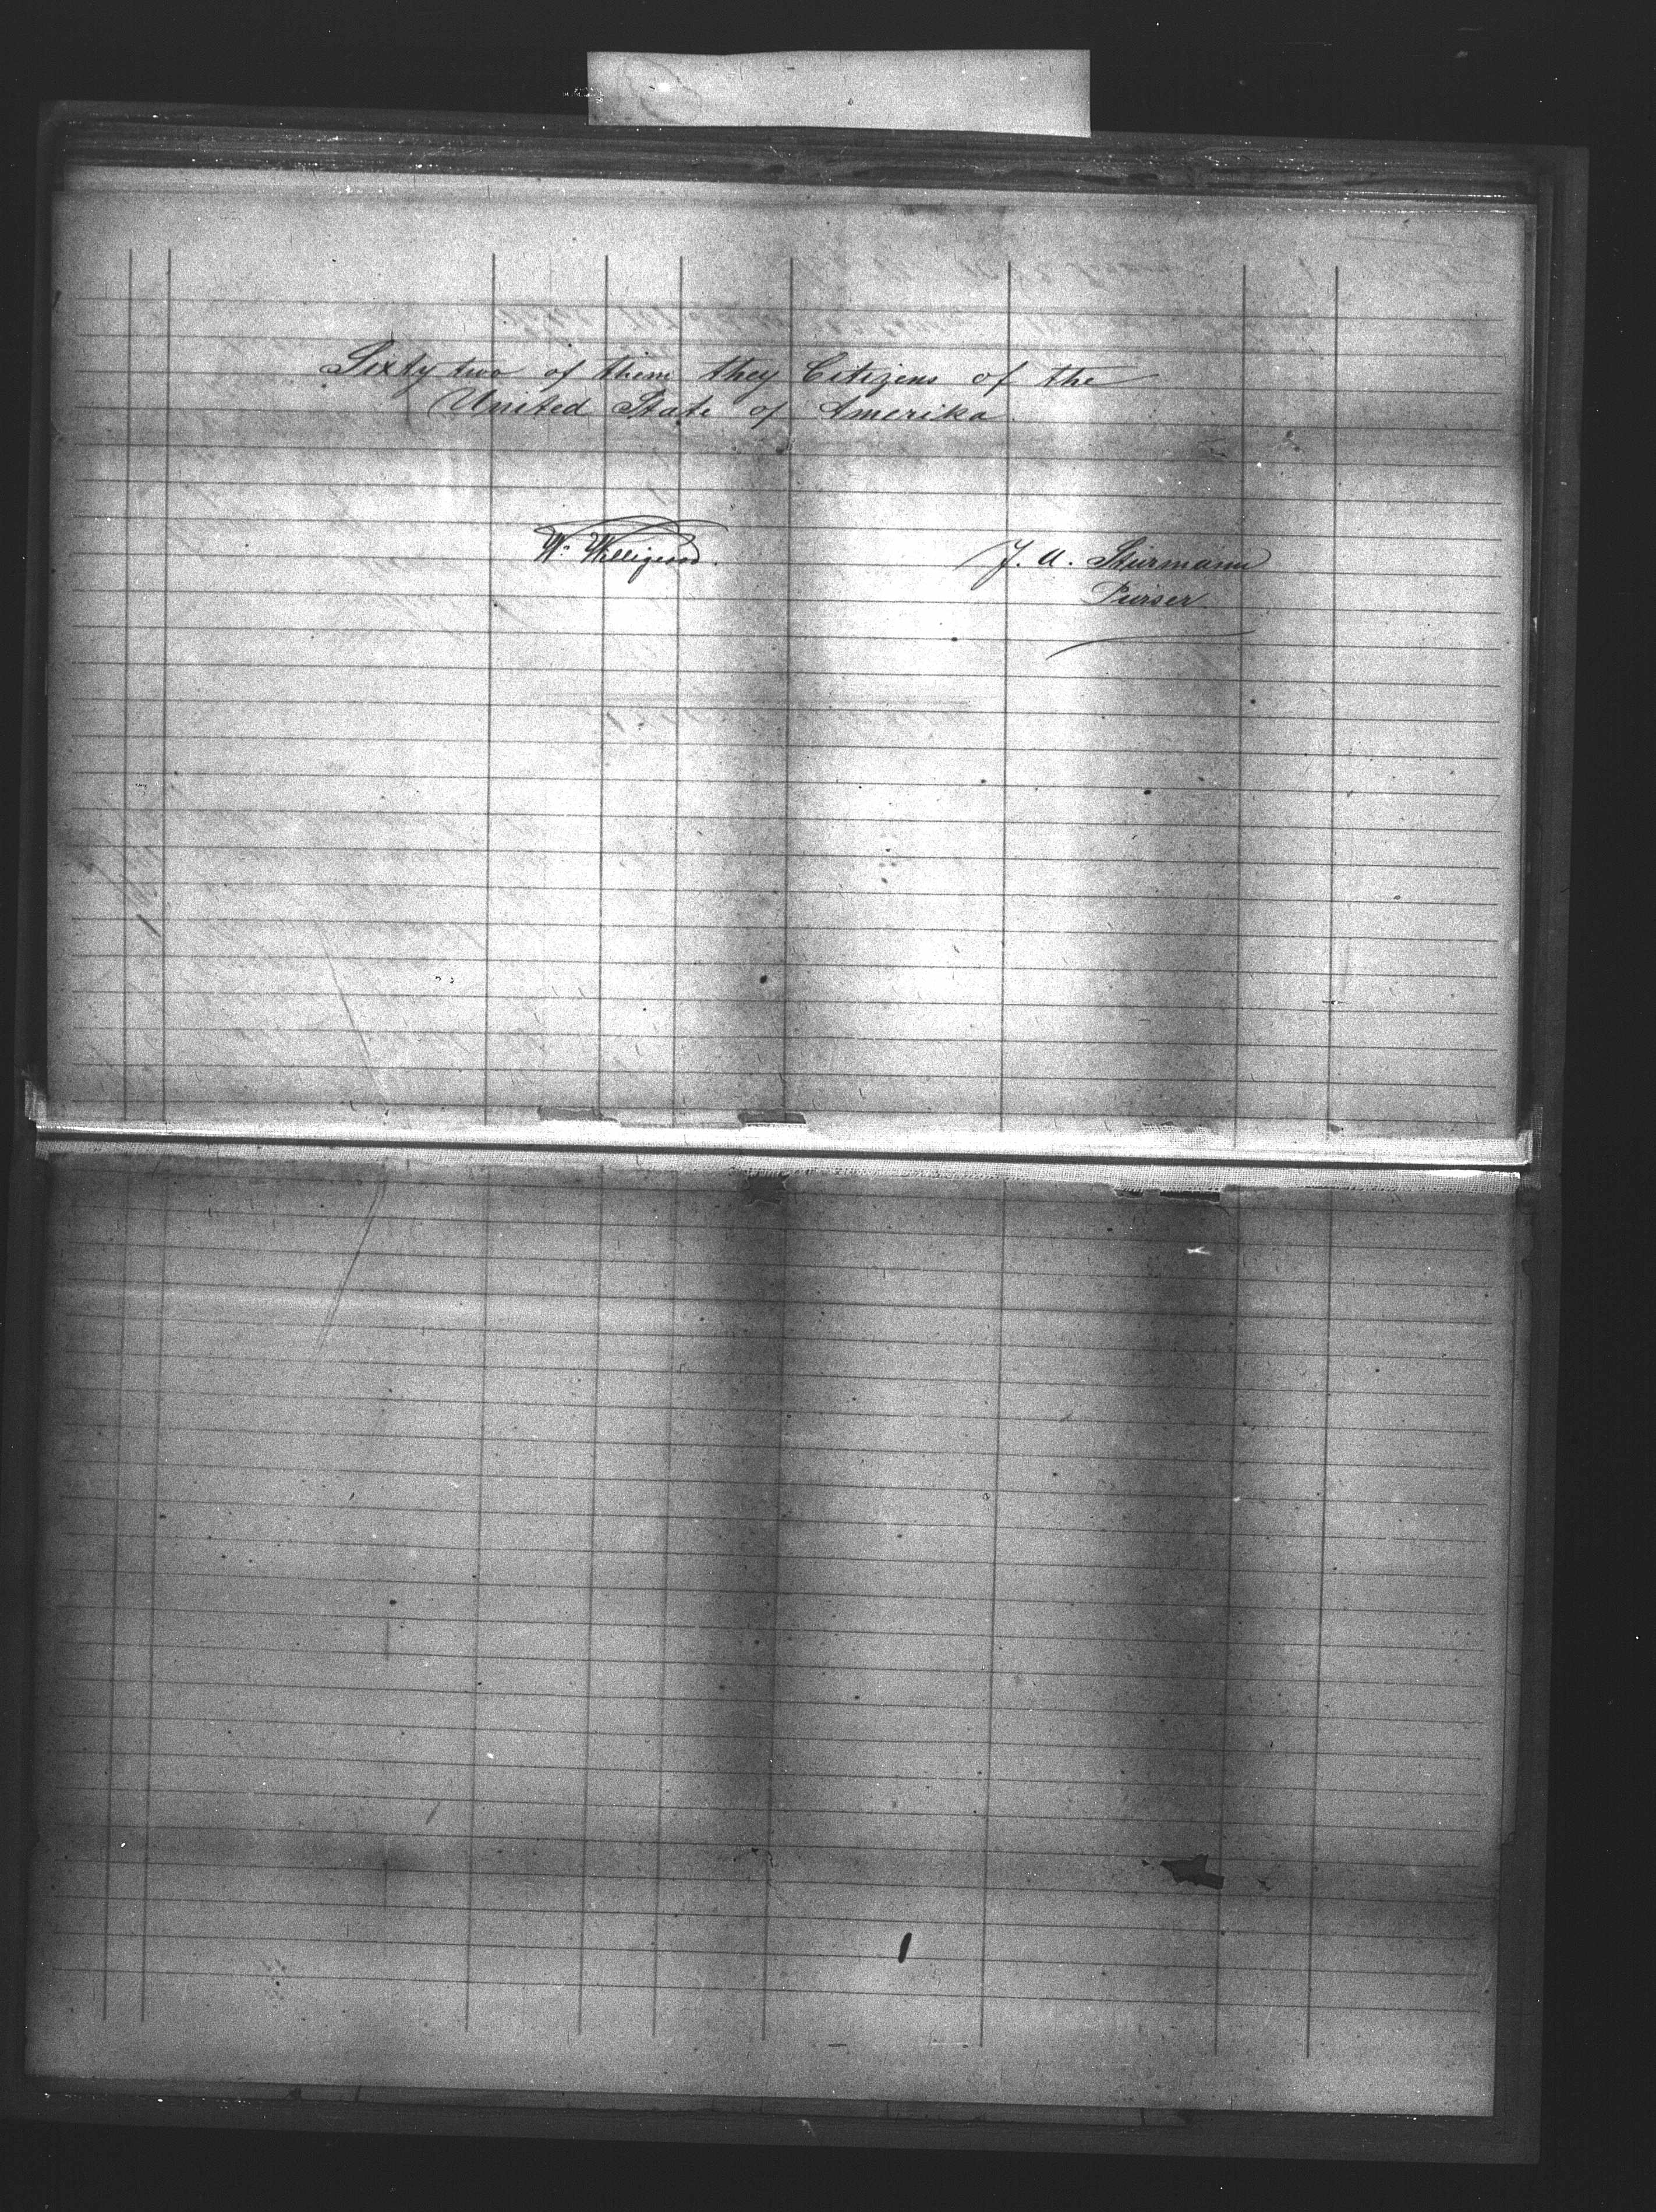 Sixty two of them they Citizens of the
United State of Amerika
W. Willigerod.
J. A. Stürmann
Purser